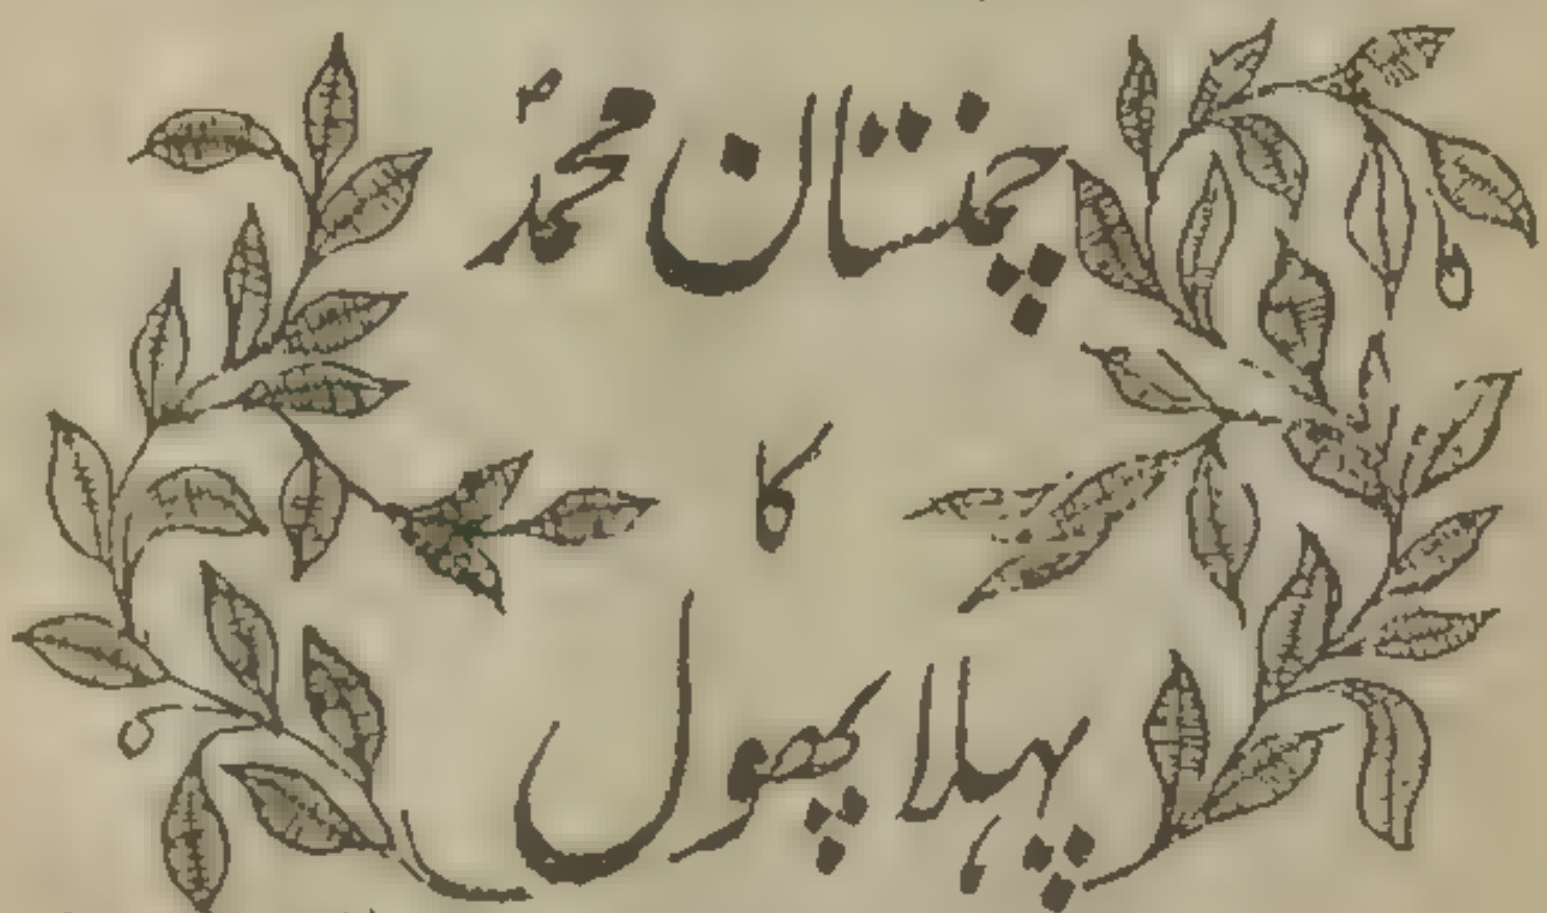 چمنستان محمدؐ
کا
پہلا پھول